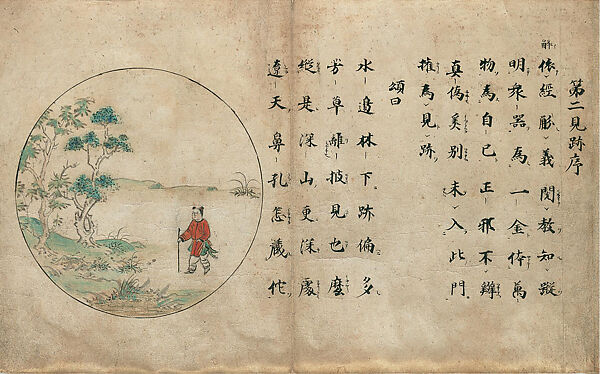 第二見跡序
解
依經彫義閲教知蹤
明衆器為一金体萬
物為自己正邪不辨
真偽奚別未入此門
權為見跡
頌曰
水邊林下跡偏多
芳草離披見也麼
縱是深山更深處
遼天鼻孔怎藏佗